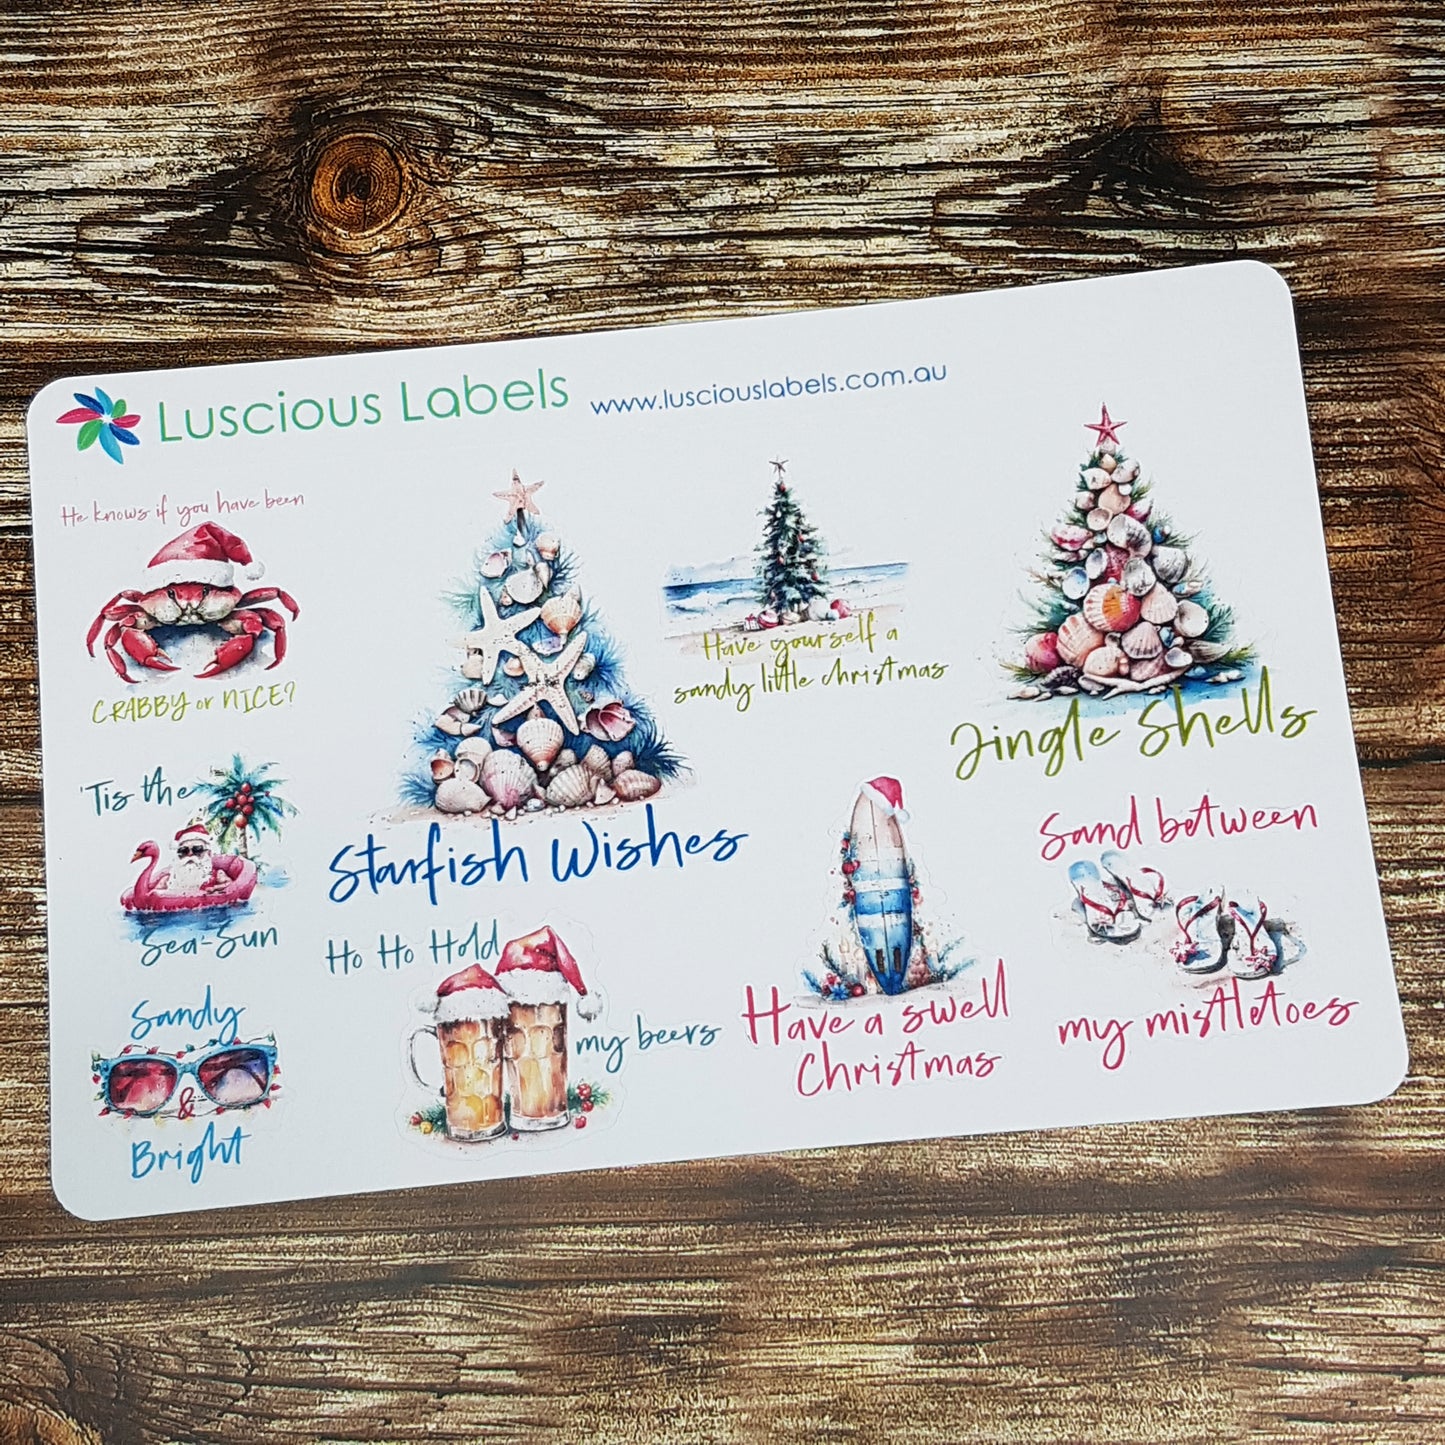 Luscious Labels www.lusciouslabels.com.au
He knows if you have been
CRABBY or NICE?
Starfish Wishes
Have yourself a
sandy little christmas
Jingle Shells
'Tis the
Sea-Sun
Ho Ho Hold
my beers
Have a swell
Christmas
Sand between
my mistletoes
Sandy
&
Bright